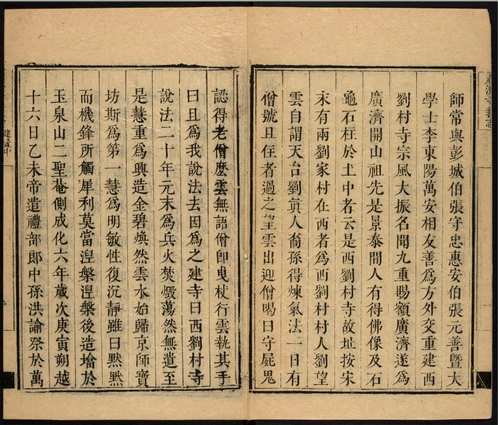 師常與彭城伯張守忠惠安伯張元善暨大
學士李東陽萬安相友善爲方外交重建西
劉村寺宗風大振名聞九重賜額廣濟遂爲
廣濟開山祖先是景泰間人有得佛像及石
龜石柱於土中者云是西劉村寺故址按宋
末有兩劉家村在西者爲西劉村村人劉望
雲自謂天台劉眞人裔孫得煉氣法一日有
僧號且住者過之望雲出迎僧喝曰守屍鬼
認得老僧麽雲無語僧卽曳杖行雲執其手
曰且爲我說法去因爲之建寺曰西劉村寺
說法二十年元末爲兵火焚燬蕩然無遺至
是慧重爲興造金碧煥然雲水始歸京師寶
坊斯爲第一慧爲明敏性復沉靜雖日黙黙
而機鋒所觸犀利莫當涅槃涅槃後造塔於
玉泉山二聖菴側成化六年歲次庚寅朔越
十六日乙未帝遣禮部郎中孫洪諭祭於萬